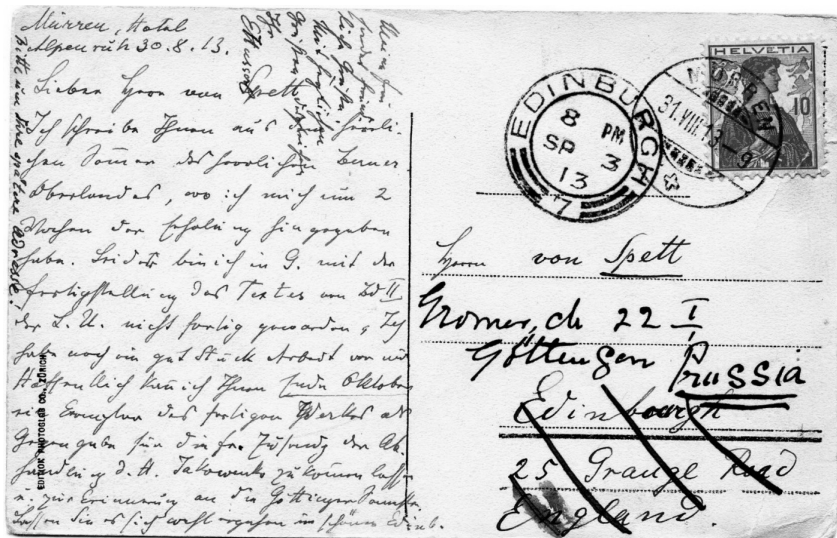 Mürren, Hotel
Alpenruh 30.8.13.
Lieber Herr von Spett
Ich schreibe Ihnen aus dem herrli-
chen Sommer des herrlichen Berner
Oberlandes, wo ich mich um 2
Wochen der Erholung hingegeben
habe. Leider bin ich in G. mit der
Fertigstellung des Textes von Bd II
der L. U. nicht fertig geworden, Ich
habe noch ein gut Stück Arbeit vor mir
Hoffentlich kann ich Ihnen Ende Oktober
ein Exemplar des fertigen Werkes als
Gegengabe für die fr. Zusendg der Ab-
handlung d. H. Jakowenko zukommen lassen
u. zur Erinnerung an die Göttinger
Lassen Sie es sich wohl ergehen im schönen Edinb.
Meine Frau
sendet
Grüße
Mit herzlichen
Grüßen
Ihr
EHusserl
Bitte um Ihre spätere Adresse.
EDITION PHOTOGLOB CO., ZÜRICH
HELVETIA
10
MÜRREN
31.VIII.13-9
EDINBURGH
8 PM
SP 3
13
7
Herrn von Spett
22 I
Göttingen Prussia
Edinburgh
25 Grange Road
England.